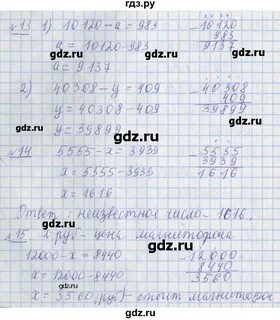 гдз.ру
№13 1) 10120-a=983 10120
a=10120-983 983
a=9137 9137
2) 40308-y=409 40308
y=40308-409 409
y=39899 39899
№14 5555-x=3939 5555
x=5555-3939 3939
x=1616 1616
Ответ: неизвестное число-1616.
№15 x руб-цена магнитофона
12000-x=8440 12000
x=12000-8440 8440
x=3560 (руб)-стоит магнитофон 3560